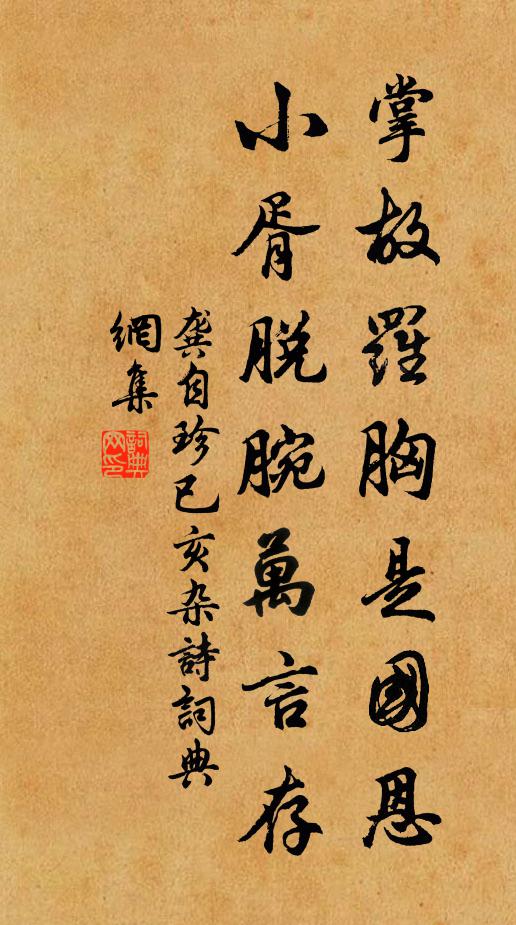 掌故羅胸是國恩
小胥脱腕萬言存
龔自珍己亥杂詩詞典
網集
詞典
网印